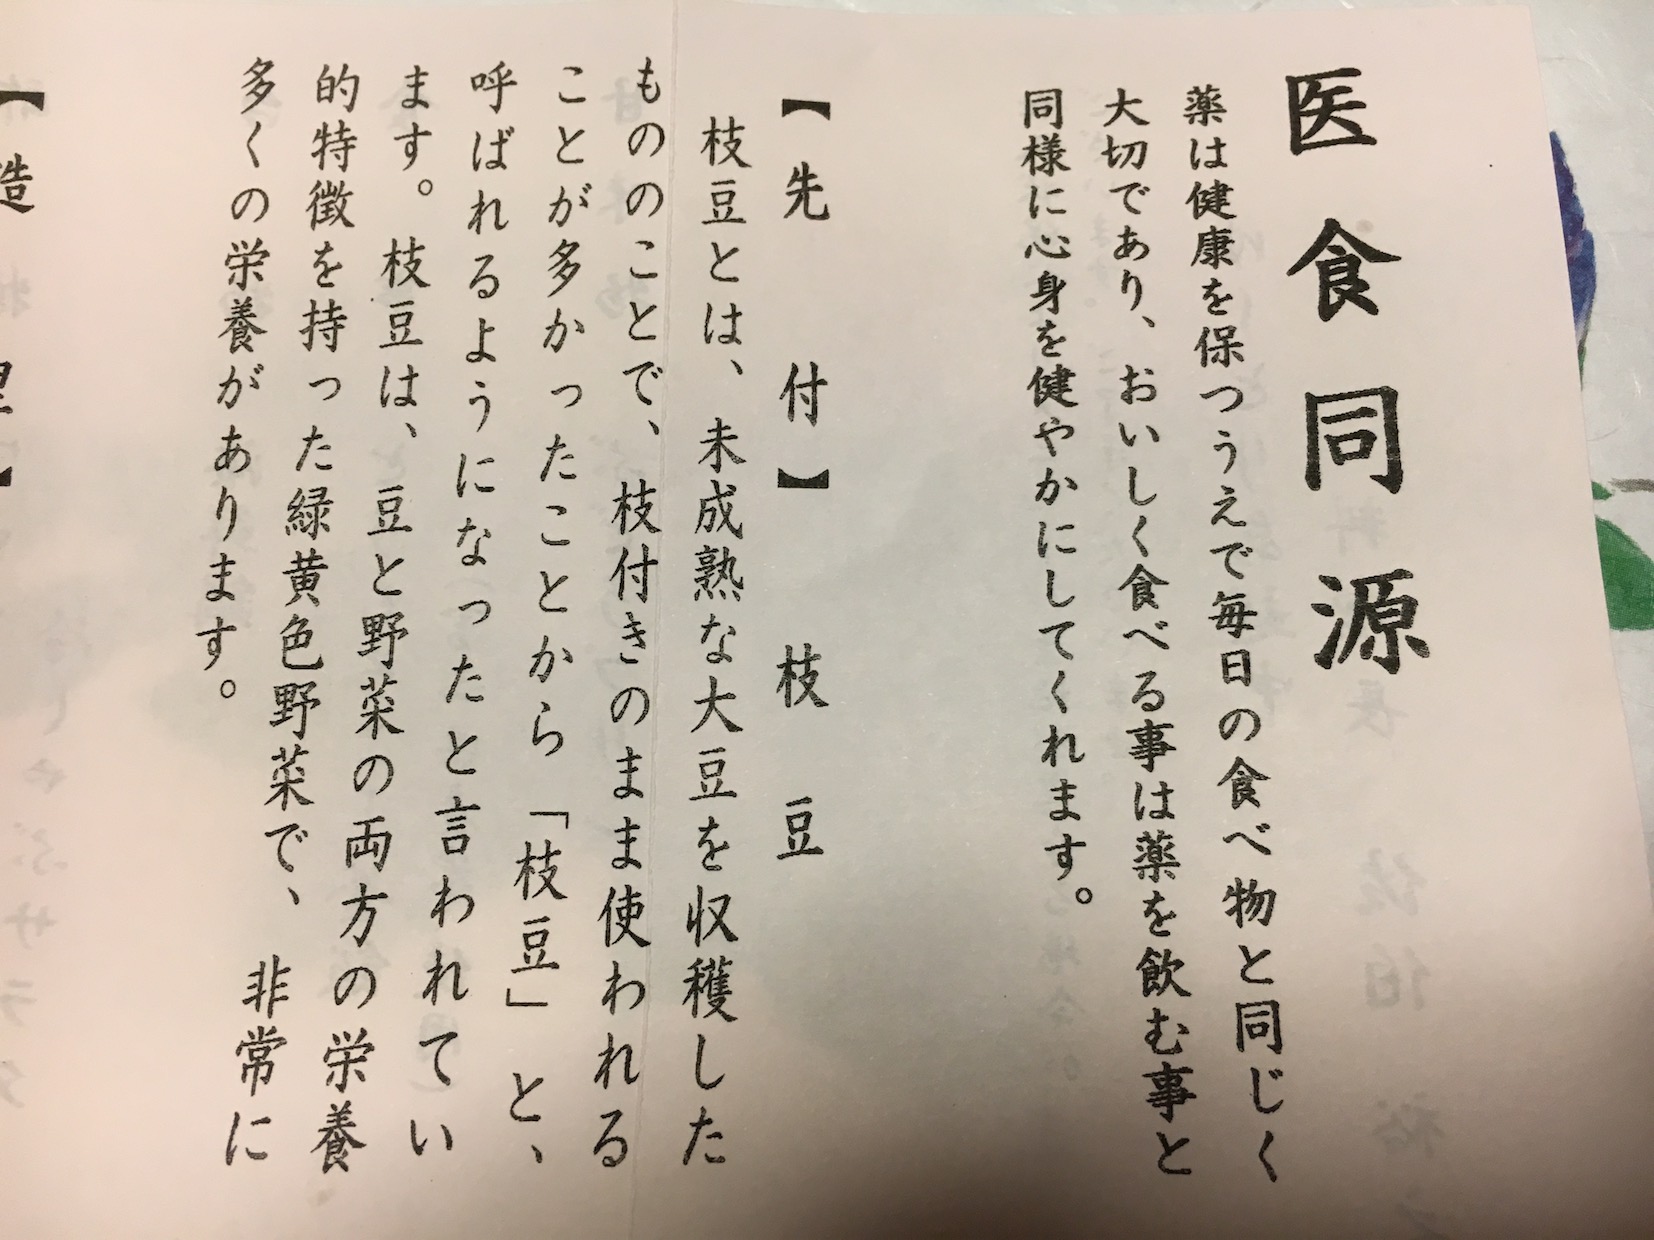 医食同源
薬は健康を保つうえで毎日の食べ物と同じく
大切であり、おいしく食べる事は薬を飲む事と
同様に心身を健やかにしてくれます。
【先付】枝豆
枝豆とは、未成熟な大豆を収穫した
もののことで、枝付きのまま使われる
ことが多かったことから「枝豆」と、
呼ばれるようになったと言われてい
ます。枝豆は、豆と野菜の両方の栄養
的特徴を持った緑黄色野菜で、非常に
多くの栄養があります。
【造